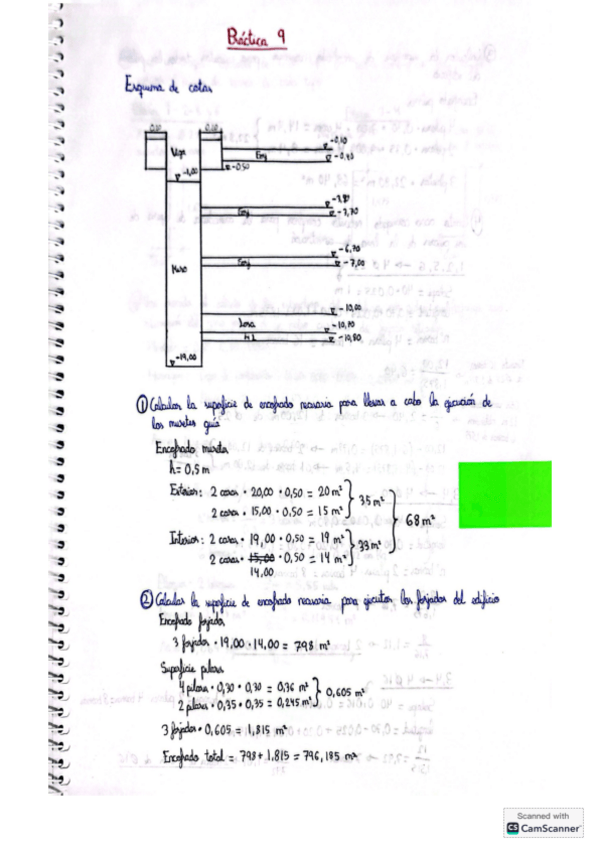 Práctica 9
Esquema de cotas
0,50
0,50
Viga
-0,10
Forj
-0,40
-0,50
-1,00
Forj
-3,70
-6,70
Forj
-7,00
Muro
-10,00
Losa
-10,70
H.L
-10,80
-14,00
① Calcular la superficie de encofrado necesaria para llevar a cabo la ejecución de
los muretes guía
Encofrado muretes
h = 0,5 m
Exterior: 2 caras · 20,00 · 0,50 = 20 m²
2 caras · 15,00 · 0,50 = 15 m²
35 m²
68 m²
Interior: 2 caras · 19,00 · 0,50 = 19 m²
2 caras · 15,00 · 0,50 = 14 m²
14,00
33 m²
② Calcular la superficie de encofrado necesaria para ejecutar los forjados del edificio
Encofrado forjados
3 forjados · 19,00 · 14,00 = 798 m²
Superficie pilares
4 pilares · 0,30 · 0,30 = 0,36 m²
2 pilares · 0,35 · 0,35 = 0,245 m²
0,605 m²
3 forjados · 0,605 = 1,815 m²
Encofrado total = 798 + 1.815 = 796,185 m²
Scanned with
CS CamScanner